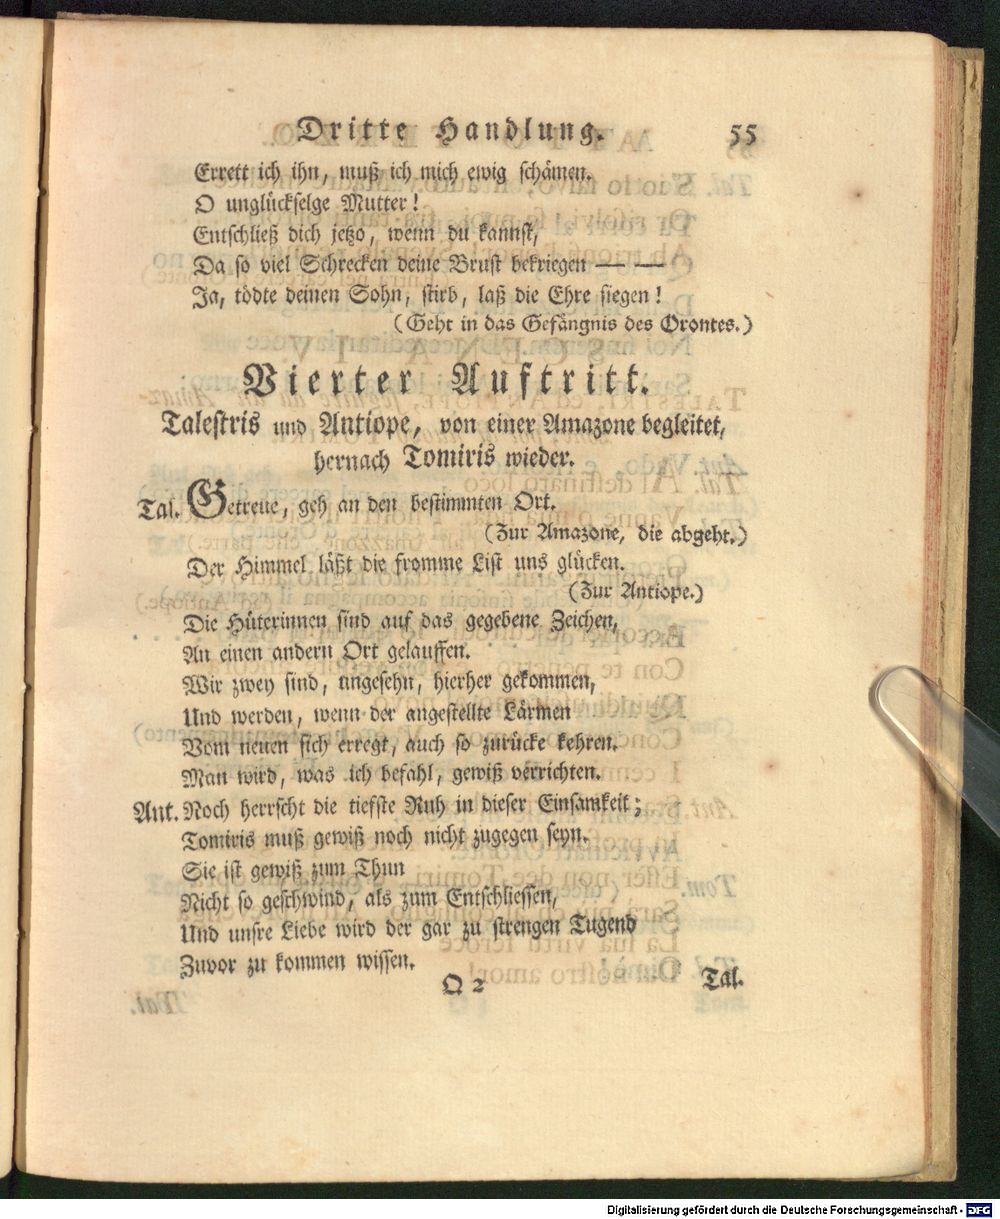 Dritte Handlung. 55
Errett ich ihn, muß ich mich ewig schämen.
O unglückselge Mutter!
Entschließ dich jetzo, wenn du kannst,
Da so viel Schrecken deine Brust bekriegen — —
Ja, tödte deinen Sohn, stirb, laß die Ehre siegen!
(Geht in das Gefängnis des Orontes.)
Vierter Auftritt.
Talestris und Antiope, von einer Amazone begleitet,
hernach Tomiris wieder.
Tal. Getreue, geh an den bestimmten Ort.
(Zur Amazone, die abgeht.)
Der Himmel läßt die fromme List uns glücken.
(Zur Antiope.)
Die Hüterinnen sind auf das gegebene Zeichen,
An einen andern Ort gelauffen.
Wir zwey sind, ungesehn, hierher gekommen,
Und werden, wenn der angestellte Lärmen
Vom neuen sich erregt, auch so zurücke kehren.
Man wird, was ich befahl, gewiß verrichten.
Ant. Noch herrscht die tiefste Ruh in dieser Einsamkeit;
Tomiris muß gewiß noch nicht zugegen seyn.
Sie ist gewiß zum Thun
Nicht so geschwind, als zum Entschliessen,
Und unsre Liebe wird der gar zu strengen Tugend
Zuvor zu kommen wissen.
O 2 Tal.
Digitalisierung gefördert durch die Deutsche Forschungsgemeinschaft - DFG